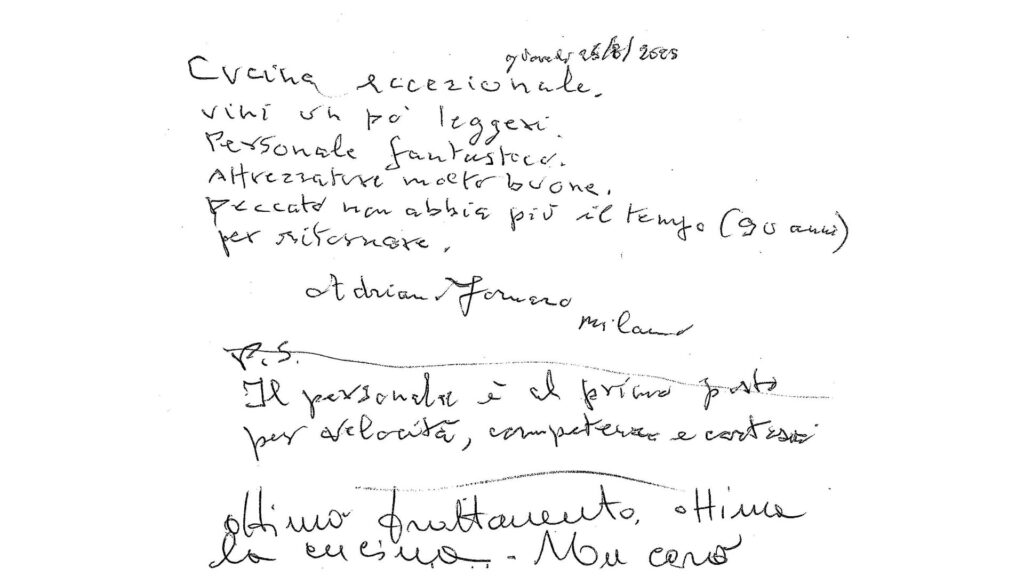 giovedì 28/8/2025
Cucina eccezionale.
vini un pò leggeri.
Personale fantastico.
Attrezzature molto buone.
peccato non abbia più il tempo (90 anni)
per ritornare.
Milano
P.S.
Il personale è al primo posto
per velocità, competenza e cortesia
ottimo trattamento, ottima
la cucina. Mon